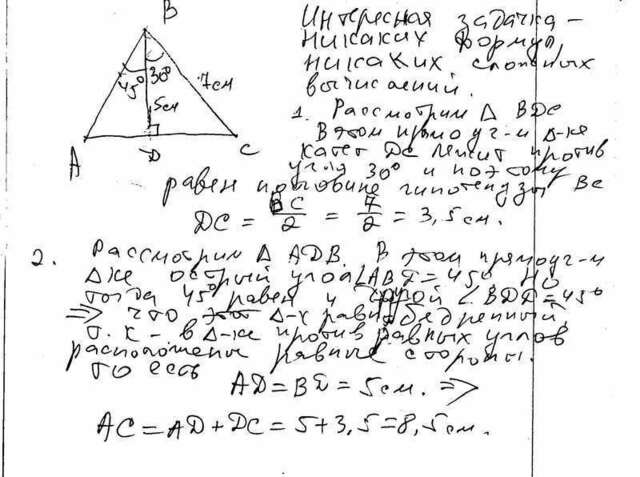 B
45°
30°
7см
5см
A
D
C
Интересная задачка –
никаких формул,
никаких сложных
вычислений.
1. Рассмотрим Δ BDC
В этом прямоуг-м Δ-ке
катет DC лежит против
угла 30° и поэтому
равен половине гипотенузы BC
DC = BC/2 = 7/2 = 3,5см.
2. Рассмотрим Δ ADB. В этом прямоуг-м
Δке острый угол ∠ABD = 45° но
тогда 45° равен и другой = 45°
=> что Δ-к равнобедренный
т.к – в Δ-ке против равных углов
расположены равные стороны.
то есть
AD = BD = 5см. =>
AC = AD + DC = 5 + 3,5 = 8,5см.